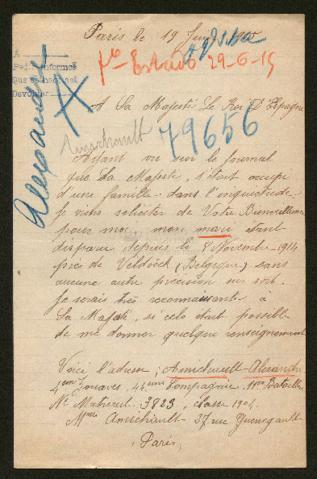 Paris le 19 Juin 1915
29-6-15
A Sa Majesté Le Roi D'Espagne
79656
Alexandre
Amichault
Ayant vu sur le journal
que La Majesté, s'était occupé
d'une famille dans l'inquiétude
je viens solliciter de Votre Bienveillance
pour moi, mon mari étant
disparu depuis le 8 Novembre 1914
près de Veldöeck (Belgique) sans
aucune autre précision sur sort.
Je serais très reconnaissante à
La Majesté, si cela était possible
de me donner quelque renseignement
Voici l'adresse : Amichault-Alexandre
4ème Zouaves, 44ème Compagnie, 11me Bataillon
No Matricule 3823, classe 1904
Mme Amichault - 37 rue Guénégault
Paris